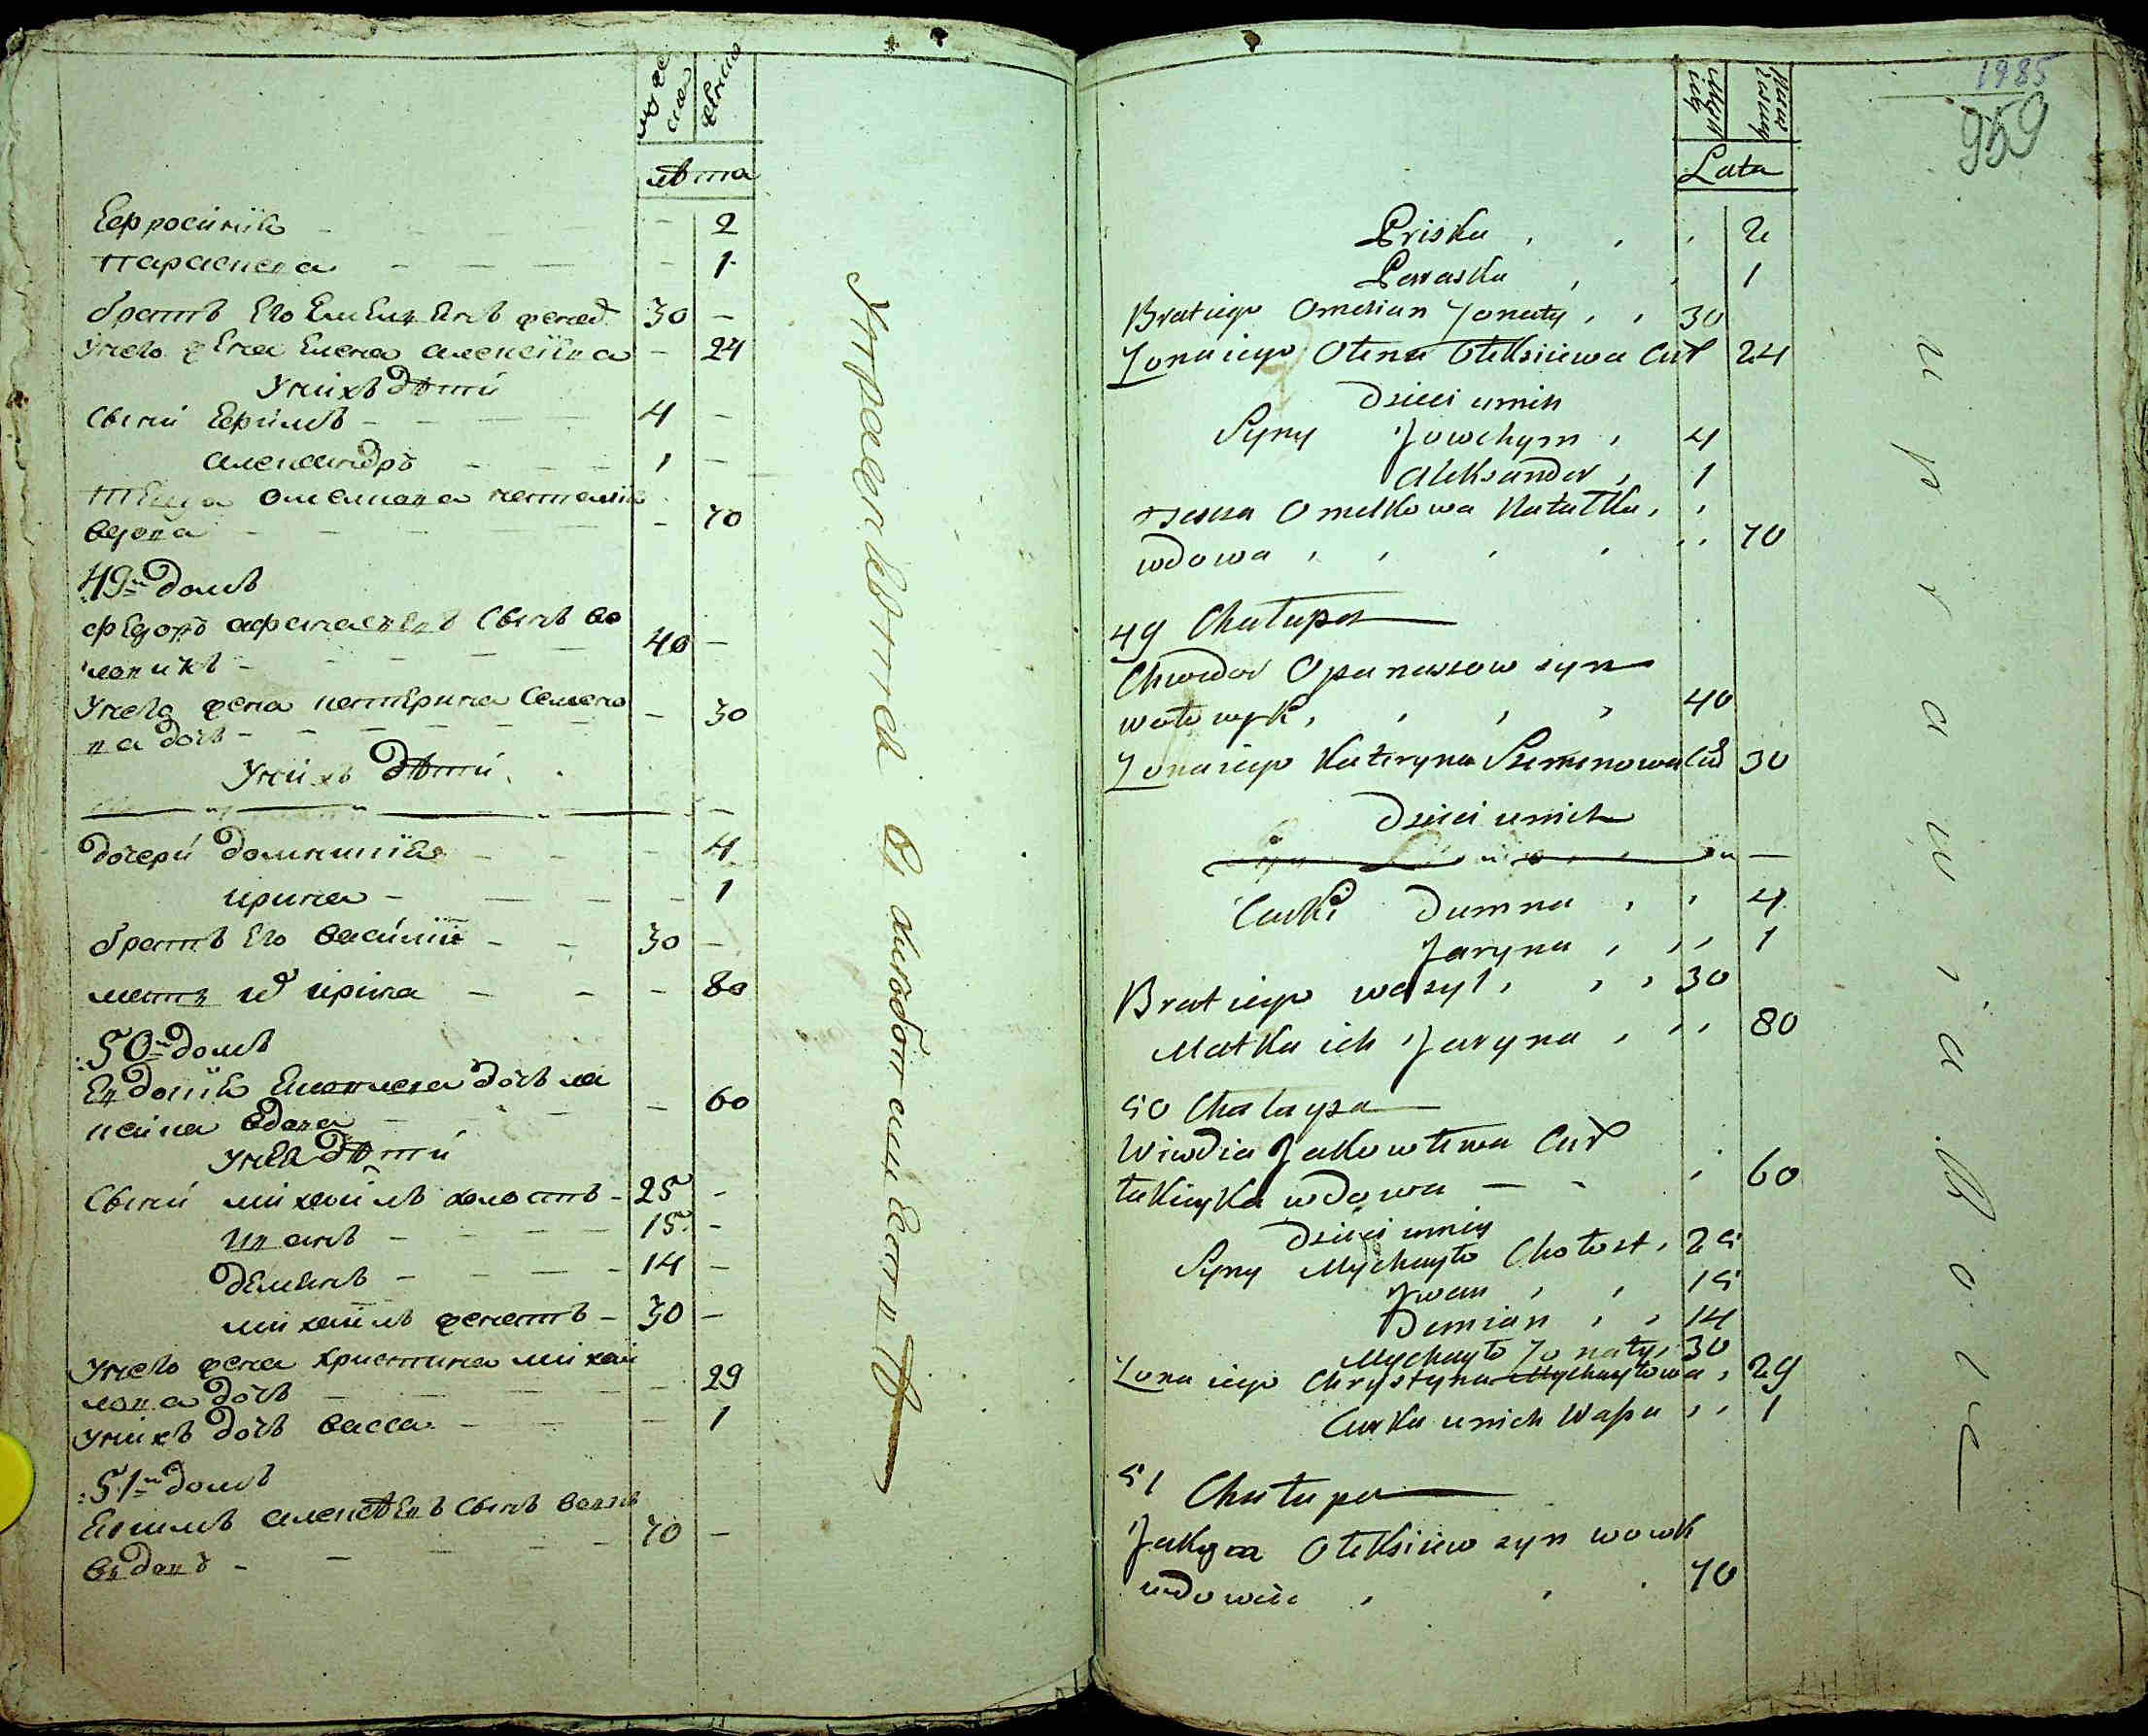 лѣта
Ефросинія - 2
Параскева - 1
братъ Его Емелiянъ женат. 30 -
Унего жена Елена алексѣiва - 24
Унихъ дѣти
Сыни Ефимъ - 4 -
александръ - 1 -
Теща омелкова наталiя
вдова - 70
49й домъ
Федоръ афанасиевъ Сынъ во
ловикъ - 40 -
Унего жена катерина Семено
ва дочь - 30
Унихъ дѣти
дочери домникiя - 4
ирина - 1
братъ Его васи́лiй - 30 -
мать их ирина - 80
50й домъ
Евдокiя Яковлева дочь ла
вдова - 60
Унея дѣти
Сыни михайлъ холостъ - 25 -
иванъ - 15 -
демянъ - 14 -
михайлъ женатъ - 30 -
Унего жена христина михай
лова дочь - 29
Унихъ дочь васса - 1
51й домъ
Якимъ алексѣевъ Сынъ вовкъ
вдовъ - 70 -
1985
959
Lata
Priska 2
Paraska 1
Brat iego Omelian Żonaty 30
Żona iego Ołena Ołeksiiewa Cur 24
Dzieci unich
Syny Jowchym 4
Aleksander 1
Teszcza Omelkowa Natałka
wdowa 70
49 Chałupa
Chwedor Opanasow syn
wołowyk 40
Żona iego Kateryna Semenowa Cur 30
Dzieci unich
Curki Dumna 4
Jaryna 1
Brat iego wasyl 30
Matka ich Jaryna 80
50 Chałupa
Wiwdia Jakowlewa Cur
wdowa - 60
Dzieci uniey
Syny Mychayło Chołost 25
Jwan 15
Demian 14
Mychayło Żonaty 30
Żona iego Chrystyna Mychayłowa 29
Curka unich Wasa 1
51 Chałupa
Jakym Ołeksiiew syn wowk
wdowiec 70